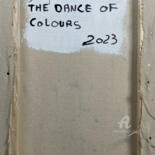 THE DANCE OF
COLOURS
2023